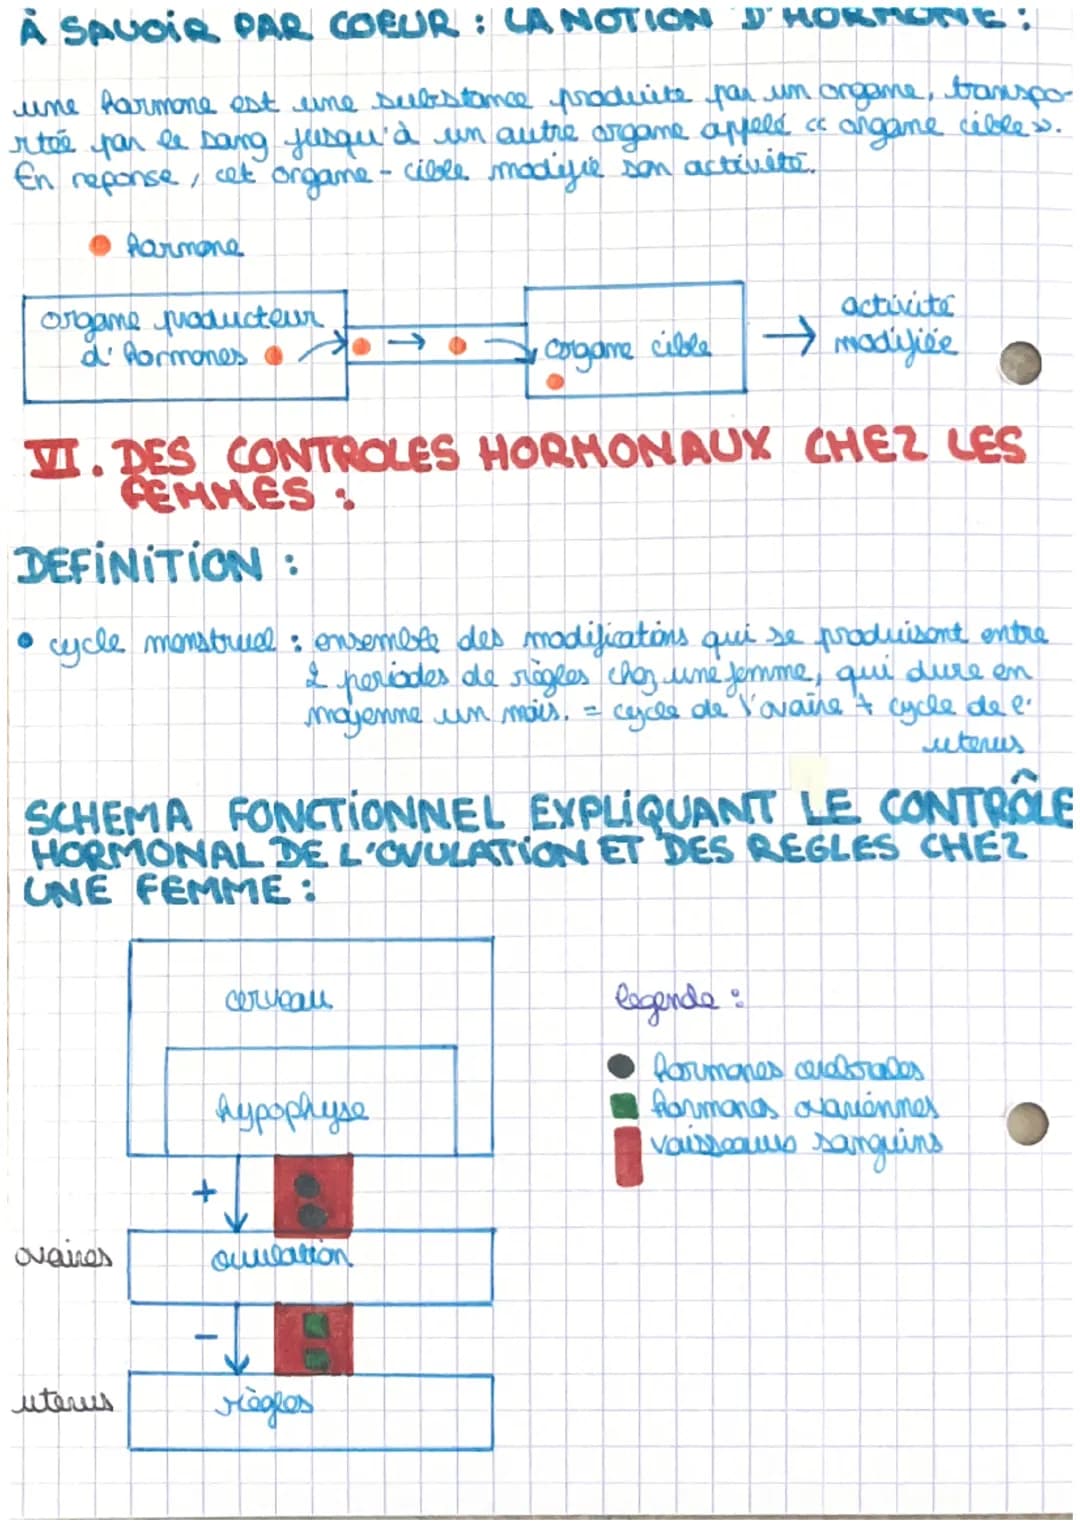 À SAVOIR PAR COEUR : LA NOTION D'HORMONE :
une hormone est une substance produite par un organe, transpo-
rtée par le sang jusqu'à un autre organe appelé « organe cible ».
En reponse, cet organe-cible modifie son activité.
hormone
organe producteur
d'hormones
organe cible
activité
modifiée
VI. DES CONTROLES HORMONAUX CHEZ LES
FEMMES :
DEFINITION :
• cycle menstruel : ensemble des modifications qui se produisent entre
2 periodes de règles chez une femme, qui dure en
moyenne un mois. = cycle de l'ovaire + cycle de l'
uterus
SCHEMA FONCTIONNEL EXPLIQUANT LE CONTRÔLE
HORMONAL DE L'OVULATION ET DES REGLES CHEZ
UNE FEMME :
cerveau
hypophyse
legende :
hormones cerebrales
hormones ovariennes
vaisseaux sanguins
+
ovaires
ovulation
-
uterus
règles